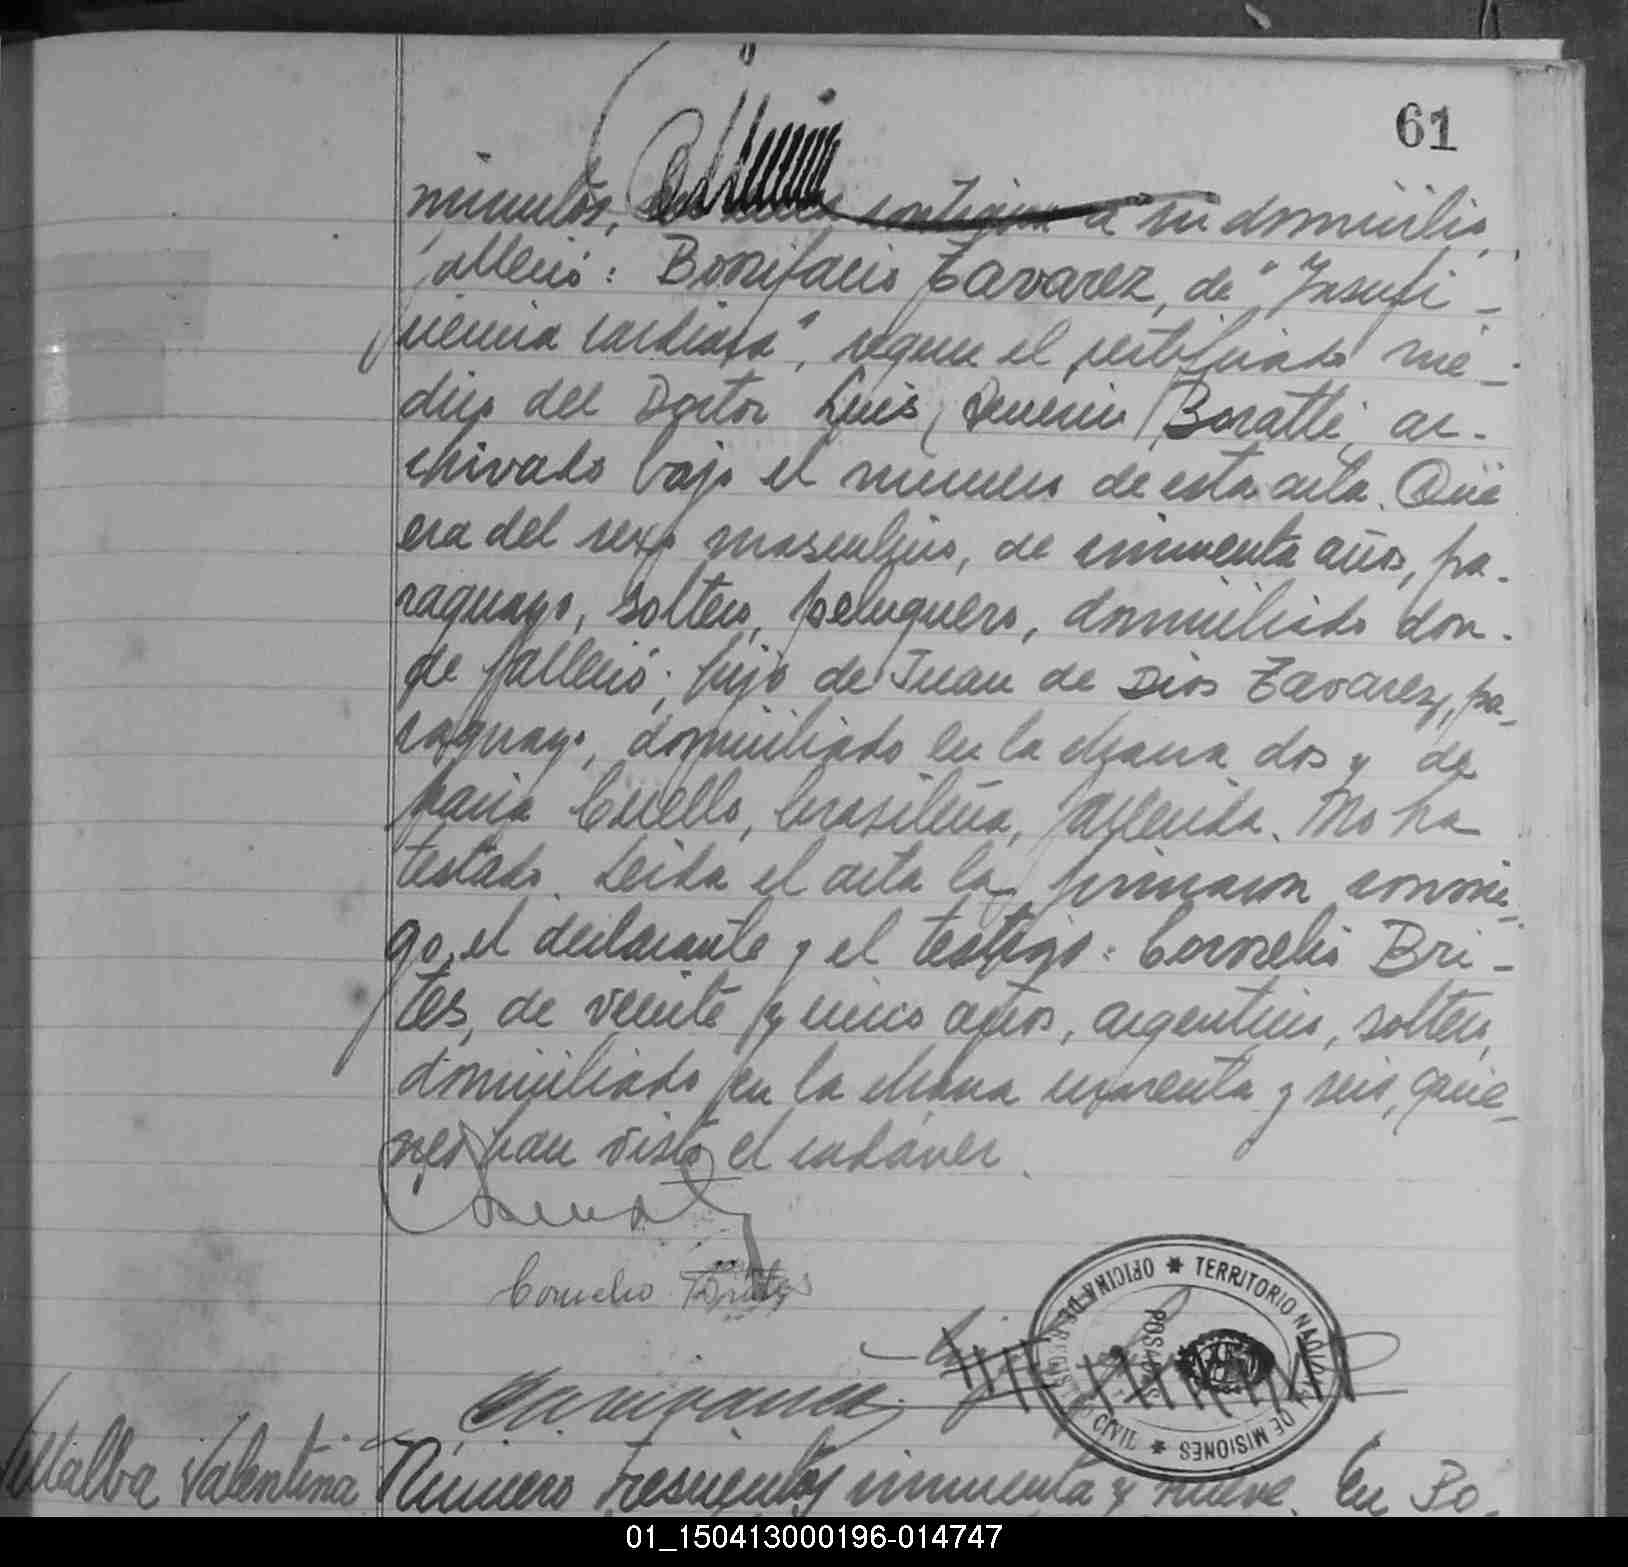 61
minutos, contigua a su domicilio,
falleció: Bonifacio Zavarez, de "Insufi-
ciencia cardiaca", según el certificado mé-
dico del Doctor Luis Boratti, ar-
chivado bajo el número de esta acta. Que
era del sexo masculino, de cincuenta años, pa-
raguayo, soltero, peluquero, domiciliado don-
de falleció; hijo de Juan de Dios Zavarez, pa-
raguayo, domiciliado en la chacra dos y de
Cuello, brasileña, fallecida. No ha
testado. Leída el acta la firmaron conmi-
go, el declarante y el testigo: Cornelio Bri-
tes, de veinte y cinco años, argentino, soltero,
domiciliado en la chacra cuarenta y seis, quie-
nes han visto el cadáver.
Cornelio Brites
OFICINA DE REGISTRO CIVIL * TERRITORIO NACIONAL DE MISIONES *
POSADAS
Villalba Valentina Número trescientos cincuenta y nueve. En Po-
01_150413000196-014747